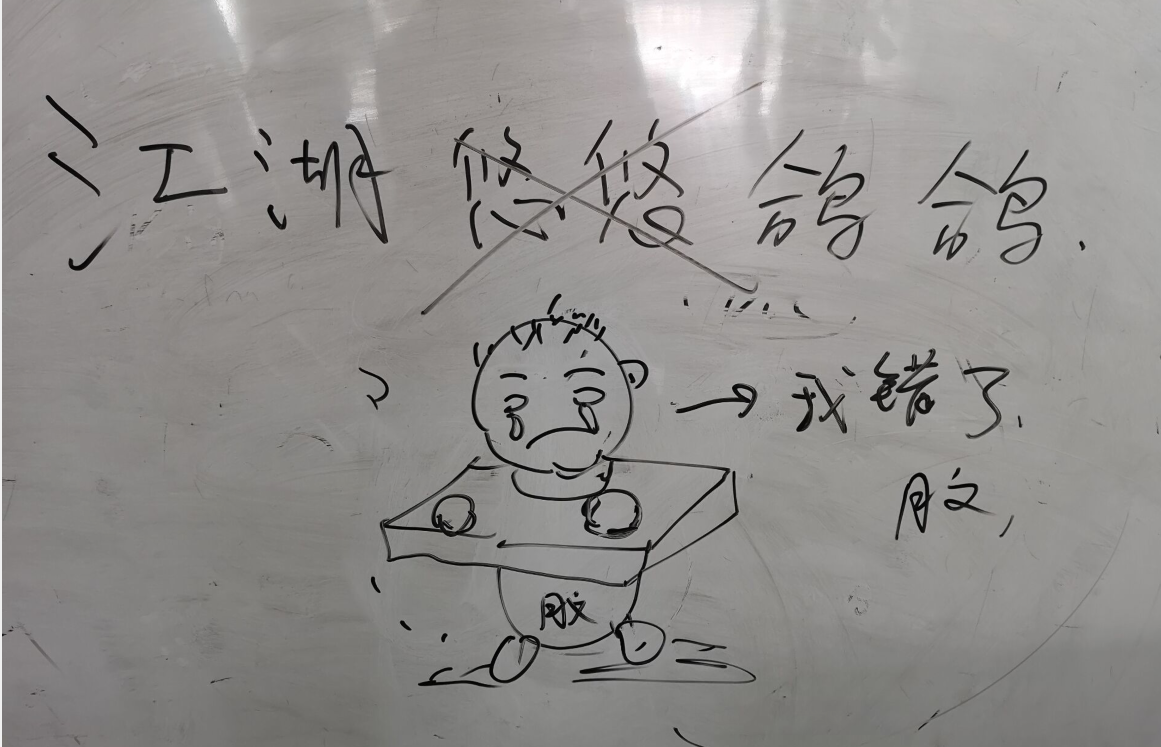 江湖悠悠鸽鸽.
我错了.